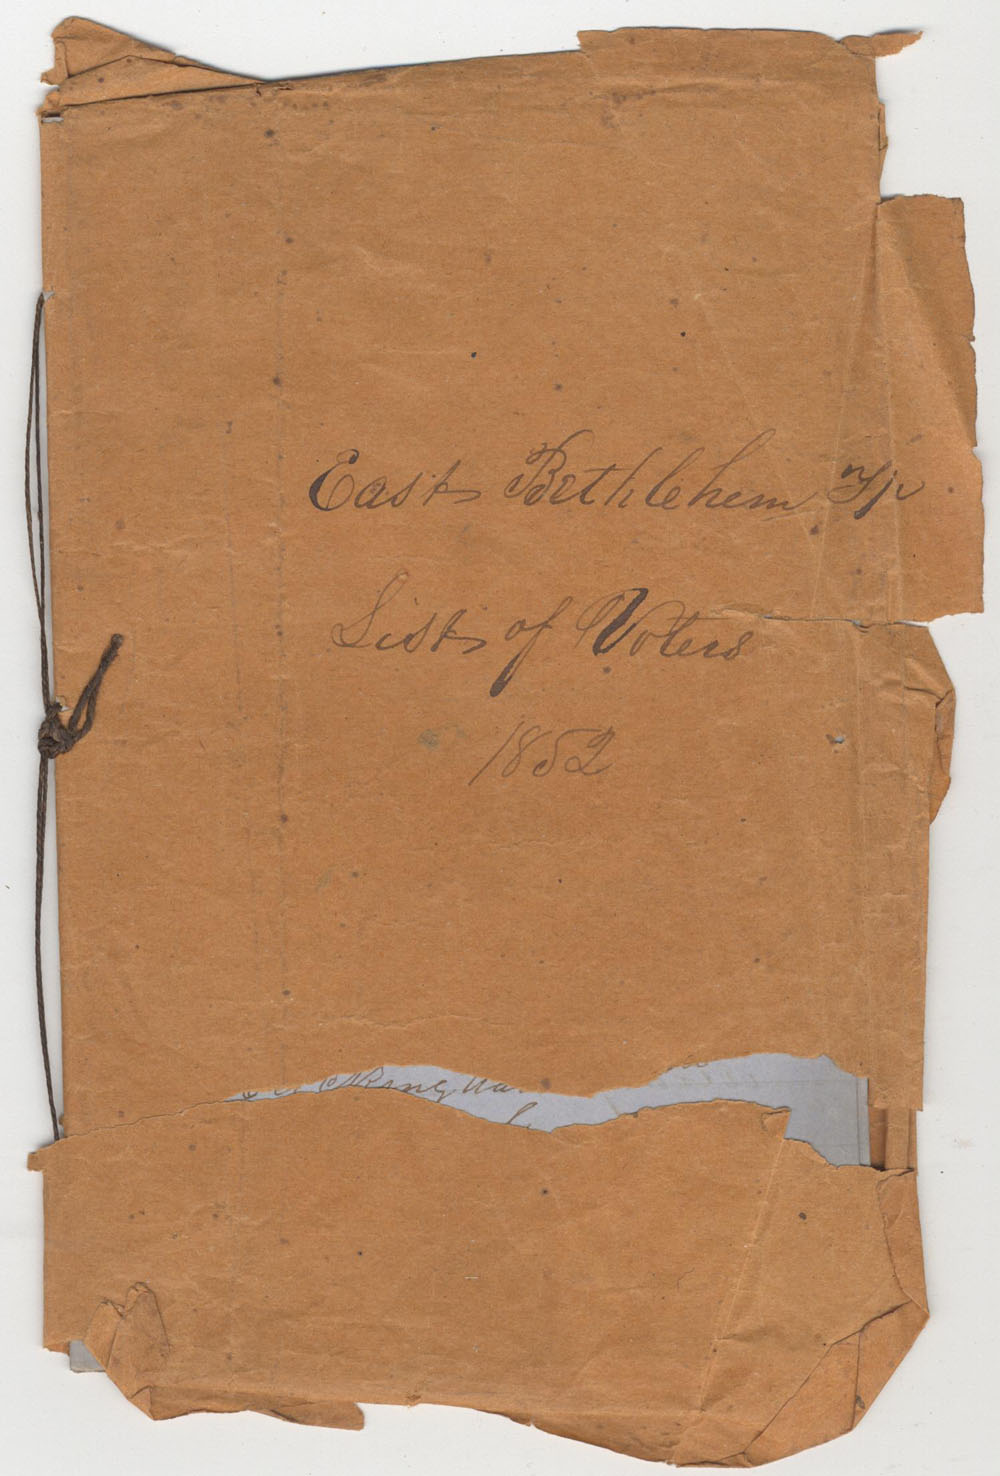 East Bethlehem Tp
List of Voters
1852